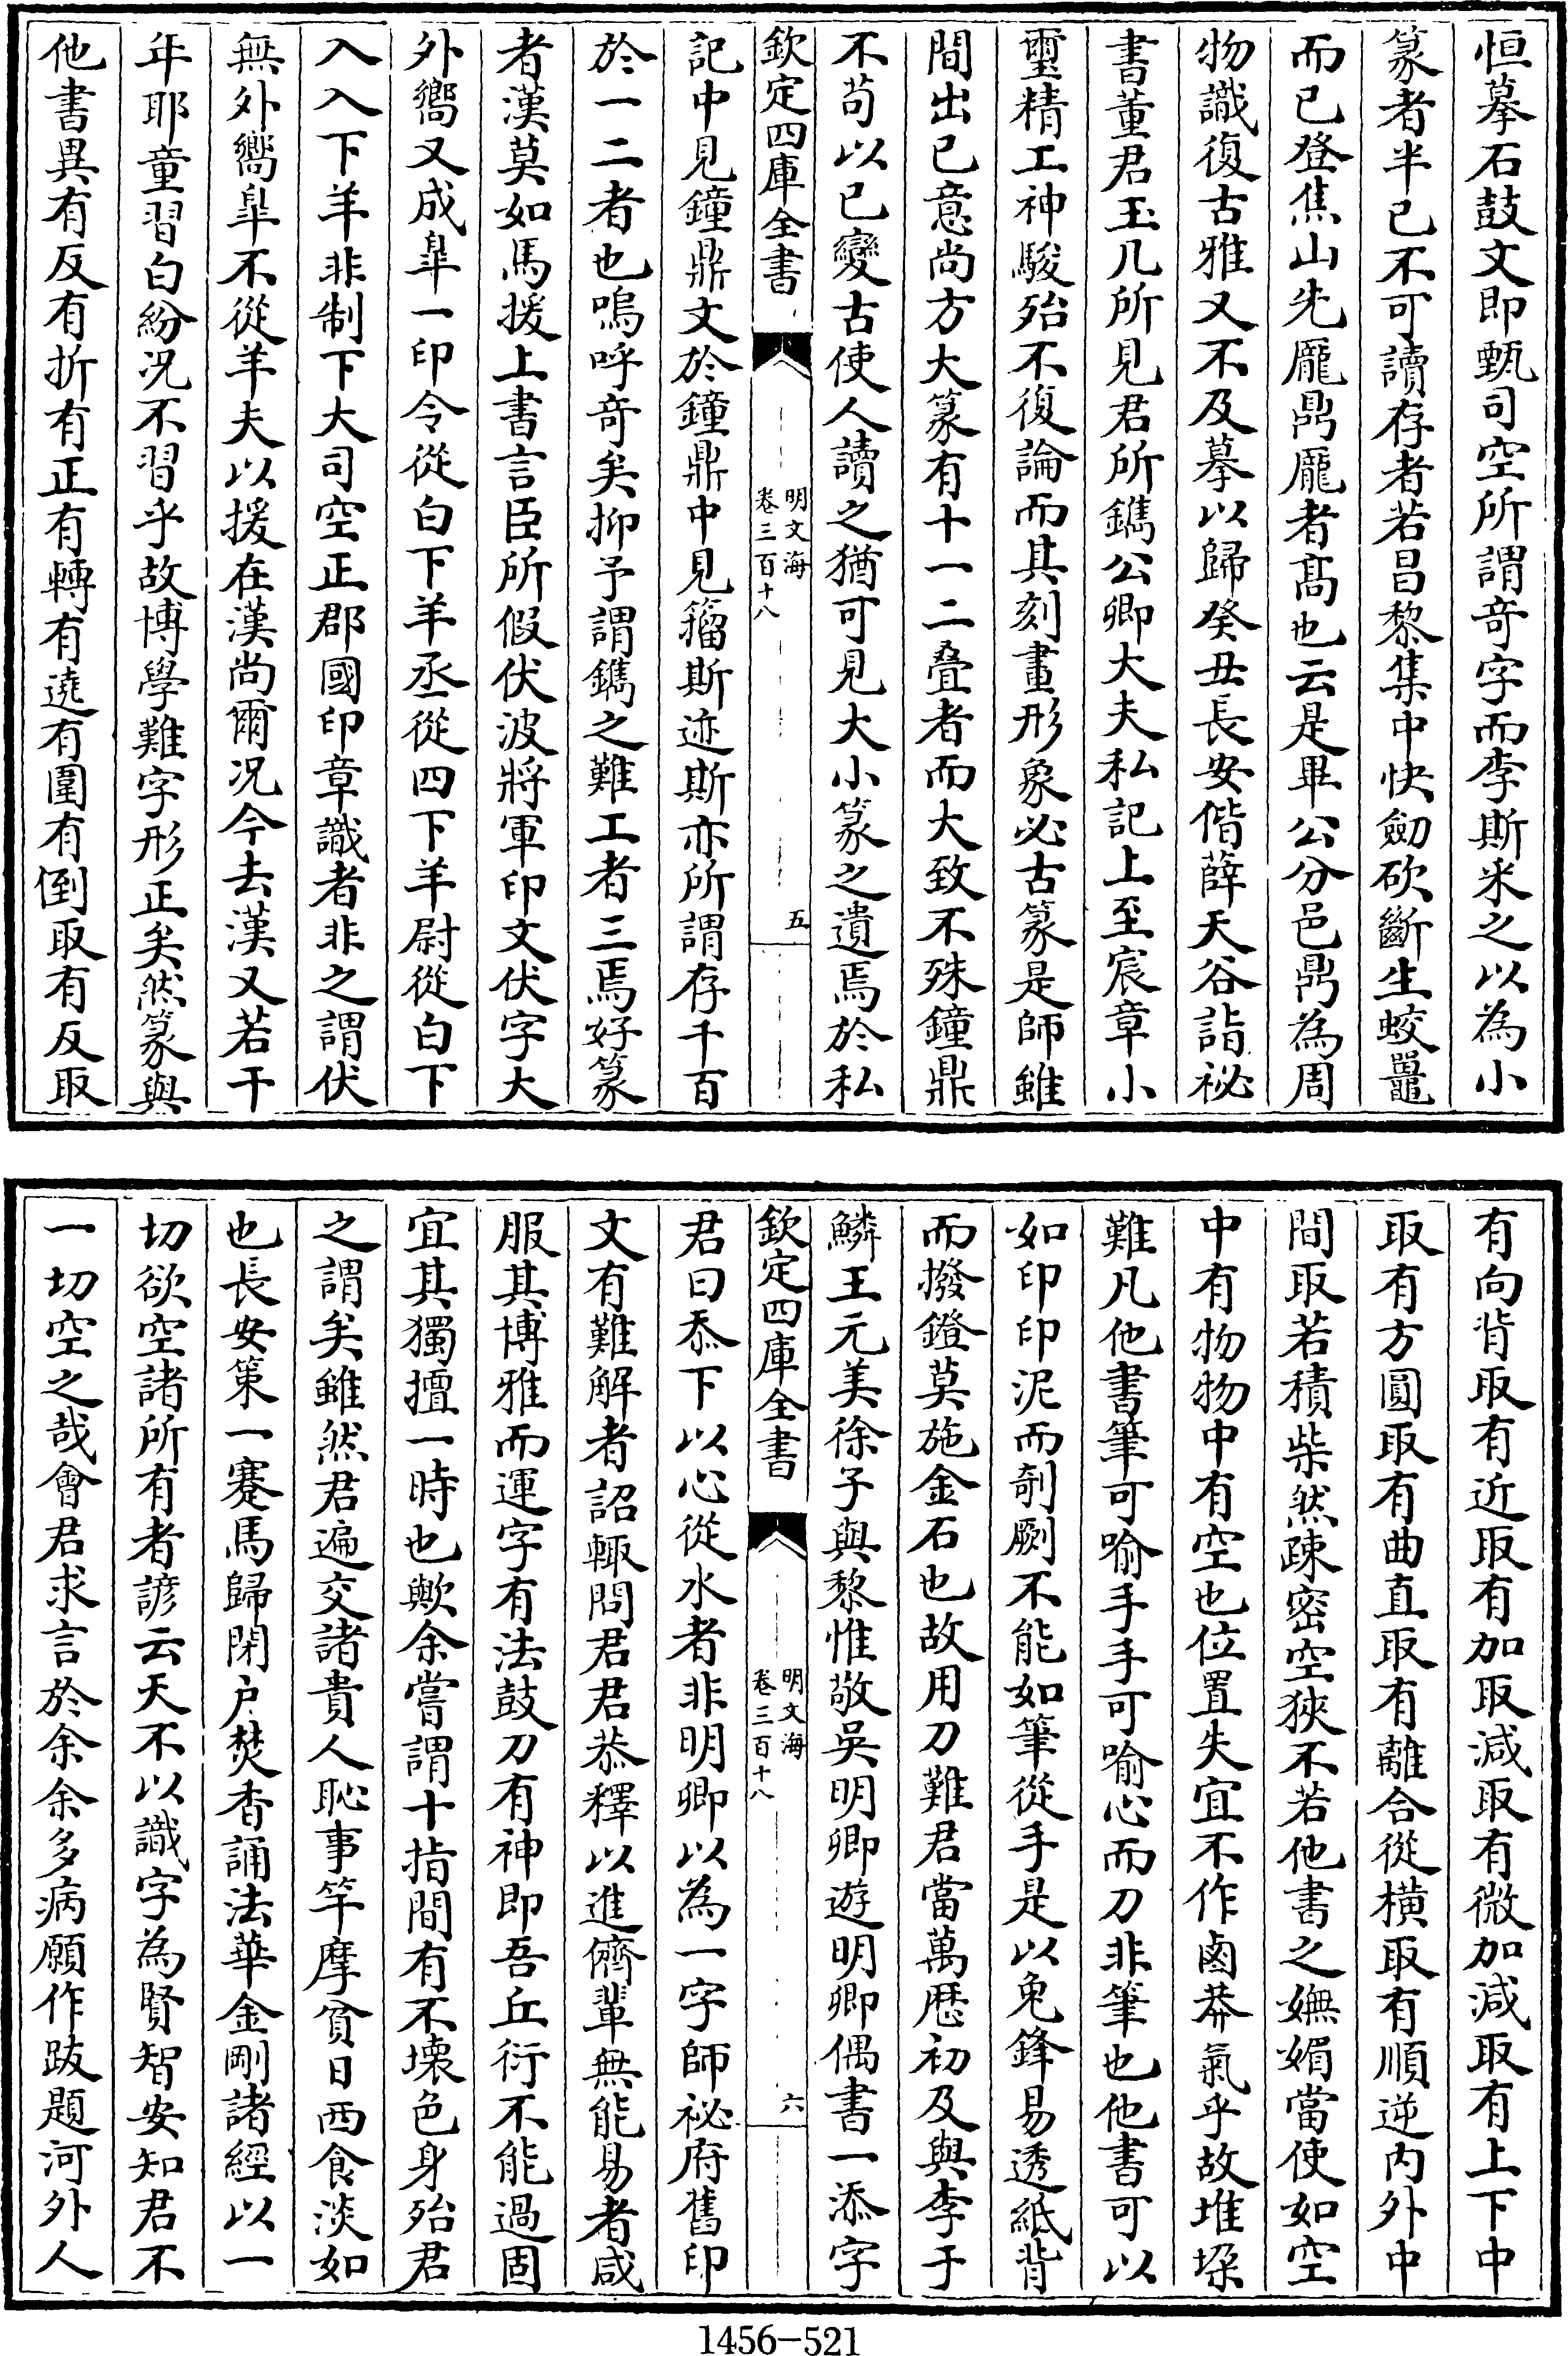 恒摹石鼓文即甄司空所謂竒字而李斯采之以為小
篆者半已不可讀存者若昌黎集中快劒砍斷生蛟鼉
而已登焦山先龎鼎龎者髙也云是畢公分邑鼎為周
物識復古雅又不及摹以歸癸丑長安偕薛天谷詣祕
書董君玉几所見君所鐫公卿大夫私記上至宸章小
璽精工神駿殆不復論而其刻畫形象必古篆是師雖
間出已意尚方大篆有十一二叠者而大致不殊鐘鼎
不苟以已變古使人讀之猶可見大小篆之遺焉於私
欽定四庫全書
明文海
卷三百十八
五
記中見鐘鼎文於鐘鼎中見籀斯迹斯亦所謂存千百
於一二者也嗚呼竒矣抑予謂鐫之難工者三焉好篆
者漢莫如馬援上書言臣所假伏波將軍印文伏字犬
外嚮又成臯一印令從白下羊丞從四下羊尉從白下
入入下羊非制下大司空正郡國印章識者非之謂伏
無外嚮臯不從羊夫以援在漢尚爾况今去漢又若干
年耶童習白紛况不習乎故博學難字形正矣然篆與
他書異有反有折有正有轉有遶有圍有倒取有反取
有向背取有近取有加取減取有微加減取有上下中
取有方圓取有曲直取有離合從橫取有順逆内外中
間取若積柴然疎密空狹不若他書之嫵媚當使如空
中有物物中有空也位置失宜不作鹵莽氣乎故堆垜
難凡他書筆可喻手手可喻心而刀非筆也他書可以
如印印泥而剞劂不能如筆從手是以兔鋒易透紙背
而撥鐙莫施金石也故用刀難君當萬厯初及與李于
鱗王元美徐子與黎惟敬吳明卿遊明卿偶書一添字
欽定四庫全書
明文海
卷三百十八
六
君曰忝下以心從水者非明卿以為一字師祕府舊印
文有難解者詔輙問君君恭釋以進儕輩無能易者咸
服其博雅而運字有法鼓刀有神即吾丘衍不能過固
宜其獨擅一時也歟余嘗謂十指間有不壊色身殆君
之謂矣雖然君遍交諸貴人恥事竿摩貧日西食淡如
也長安第一蹇馬歸閉户焚香誦法華金剛諸經以一
切欲空諸所有者諺云天不以識字為賢智安知君不
一切空之哉會君求言於余余多病願作跋題河外人
1456-521